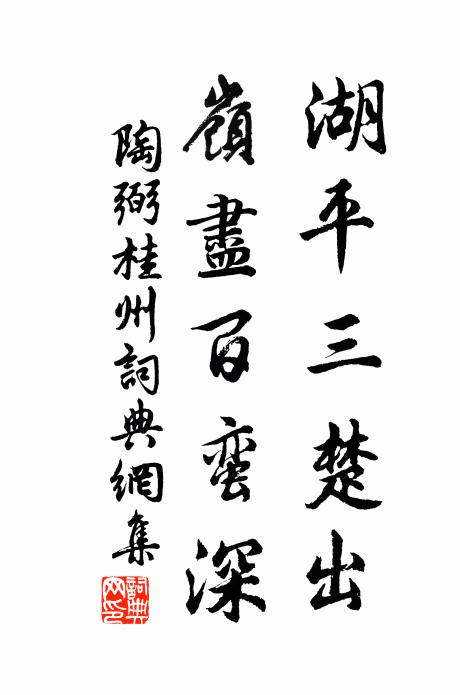 湖平三楚出
嶺盡百蛮深
陶弼桂州詞典網集
詞典网印